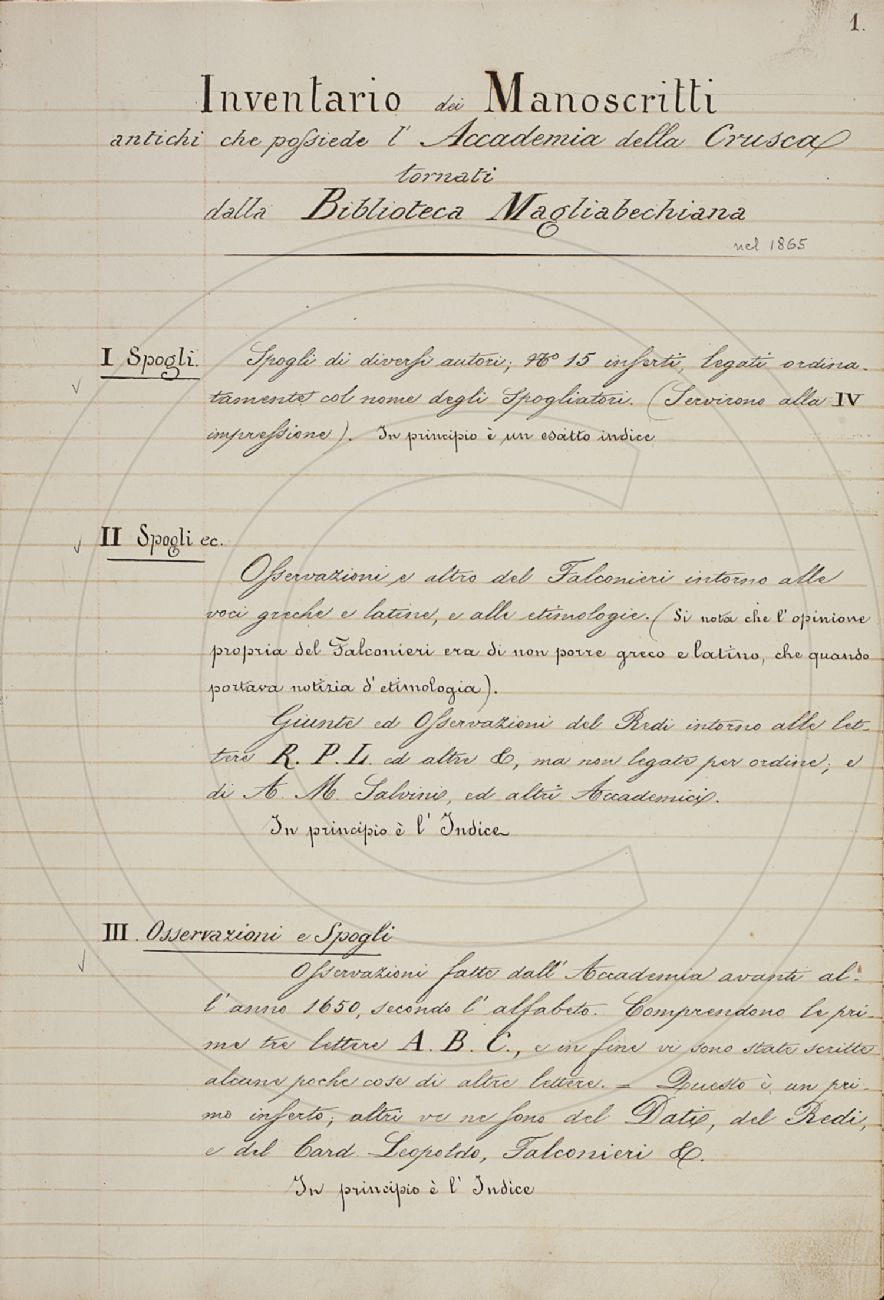 1.
Inventario dei Manoscritti
antichi che possiede l' Accademia della Crusca
tornati
dalla Biblioteca Magliabechiana
nel 1865
I Spogli. Spogli di diversi autori; No 15 inserti, legati ordina-
tamente col nome degli Spogliatori. (Servirono alla IV
impressione). In principio è un esatto indice
II Spogli ec.
Osservazioni e altro del Falconieri intorno alle
voci greche e latine, e alle etimologie. (Si nota che l'opinione
propria del Falconieri era di non porre greco e latino, che quando
portava notizia d'etimologia).
Giunte ed Osservazioni del Redi intorno alle let-
tere R. P. L. ed altre &, ma non legate per ordine; e
di A. M. Salvini, ed altri Accademici.
In principio è l'Indice
III. Osservazioni e Spogli
Osservazioni fatte dall'Accademia avanti al-
l'anno 1650, secondo l'alfabeto. Comprendono le pri-
me tre lettere A. B. C., e in fine vi sono state scritte
alcune poche cose di altre lettere. = Questo è un pri-
mo inserto; altri ve ne sono del Dati, del Redi,
e del Card. Leopoldo, Falconieri &.
In principio è l'Indice